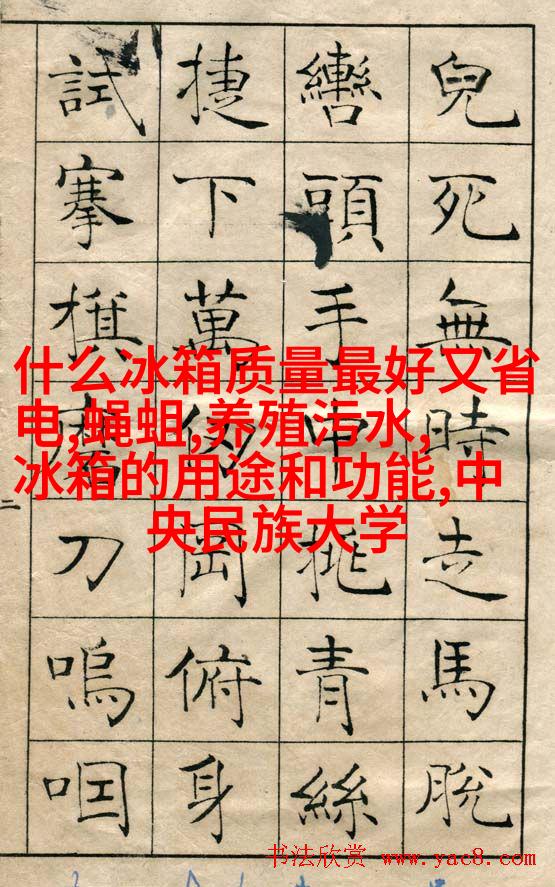 兒死無時走馬脫
轡頭手中挑青絲
捷下萬仞岡俯身
試搴旗刀嗚咽
什么冰箱质量最好又省
电,蝇蛆,养殖污水,
冰箱的用途和功能,中
央民族大学
书法欣赏 www.yac8.com